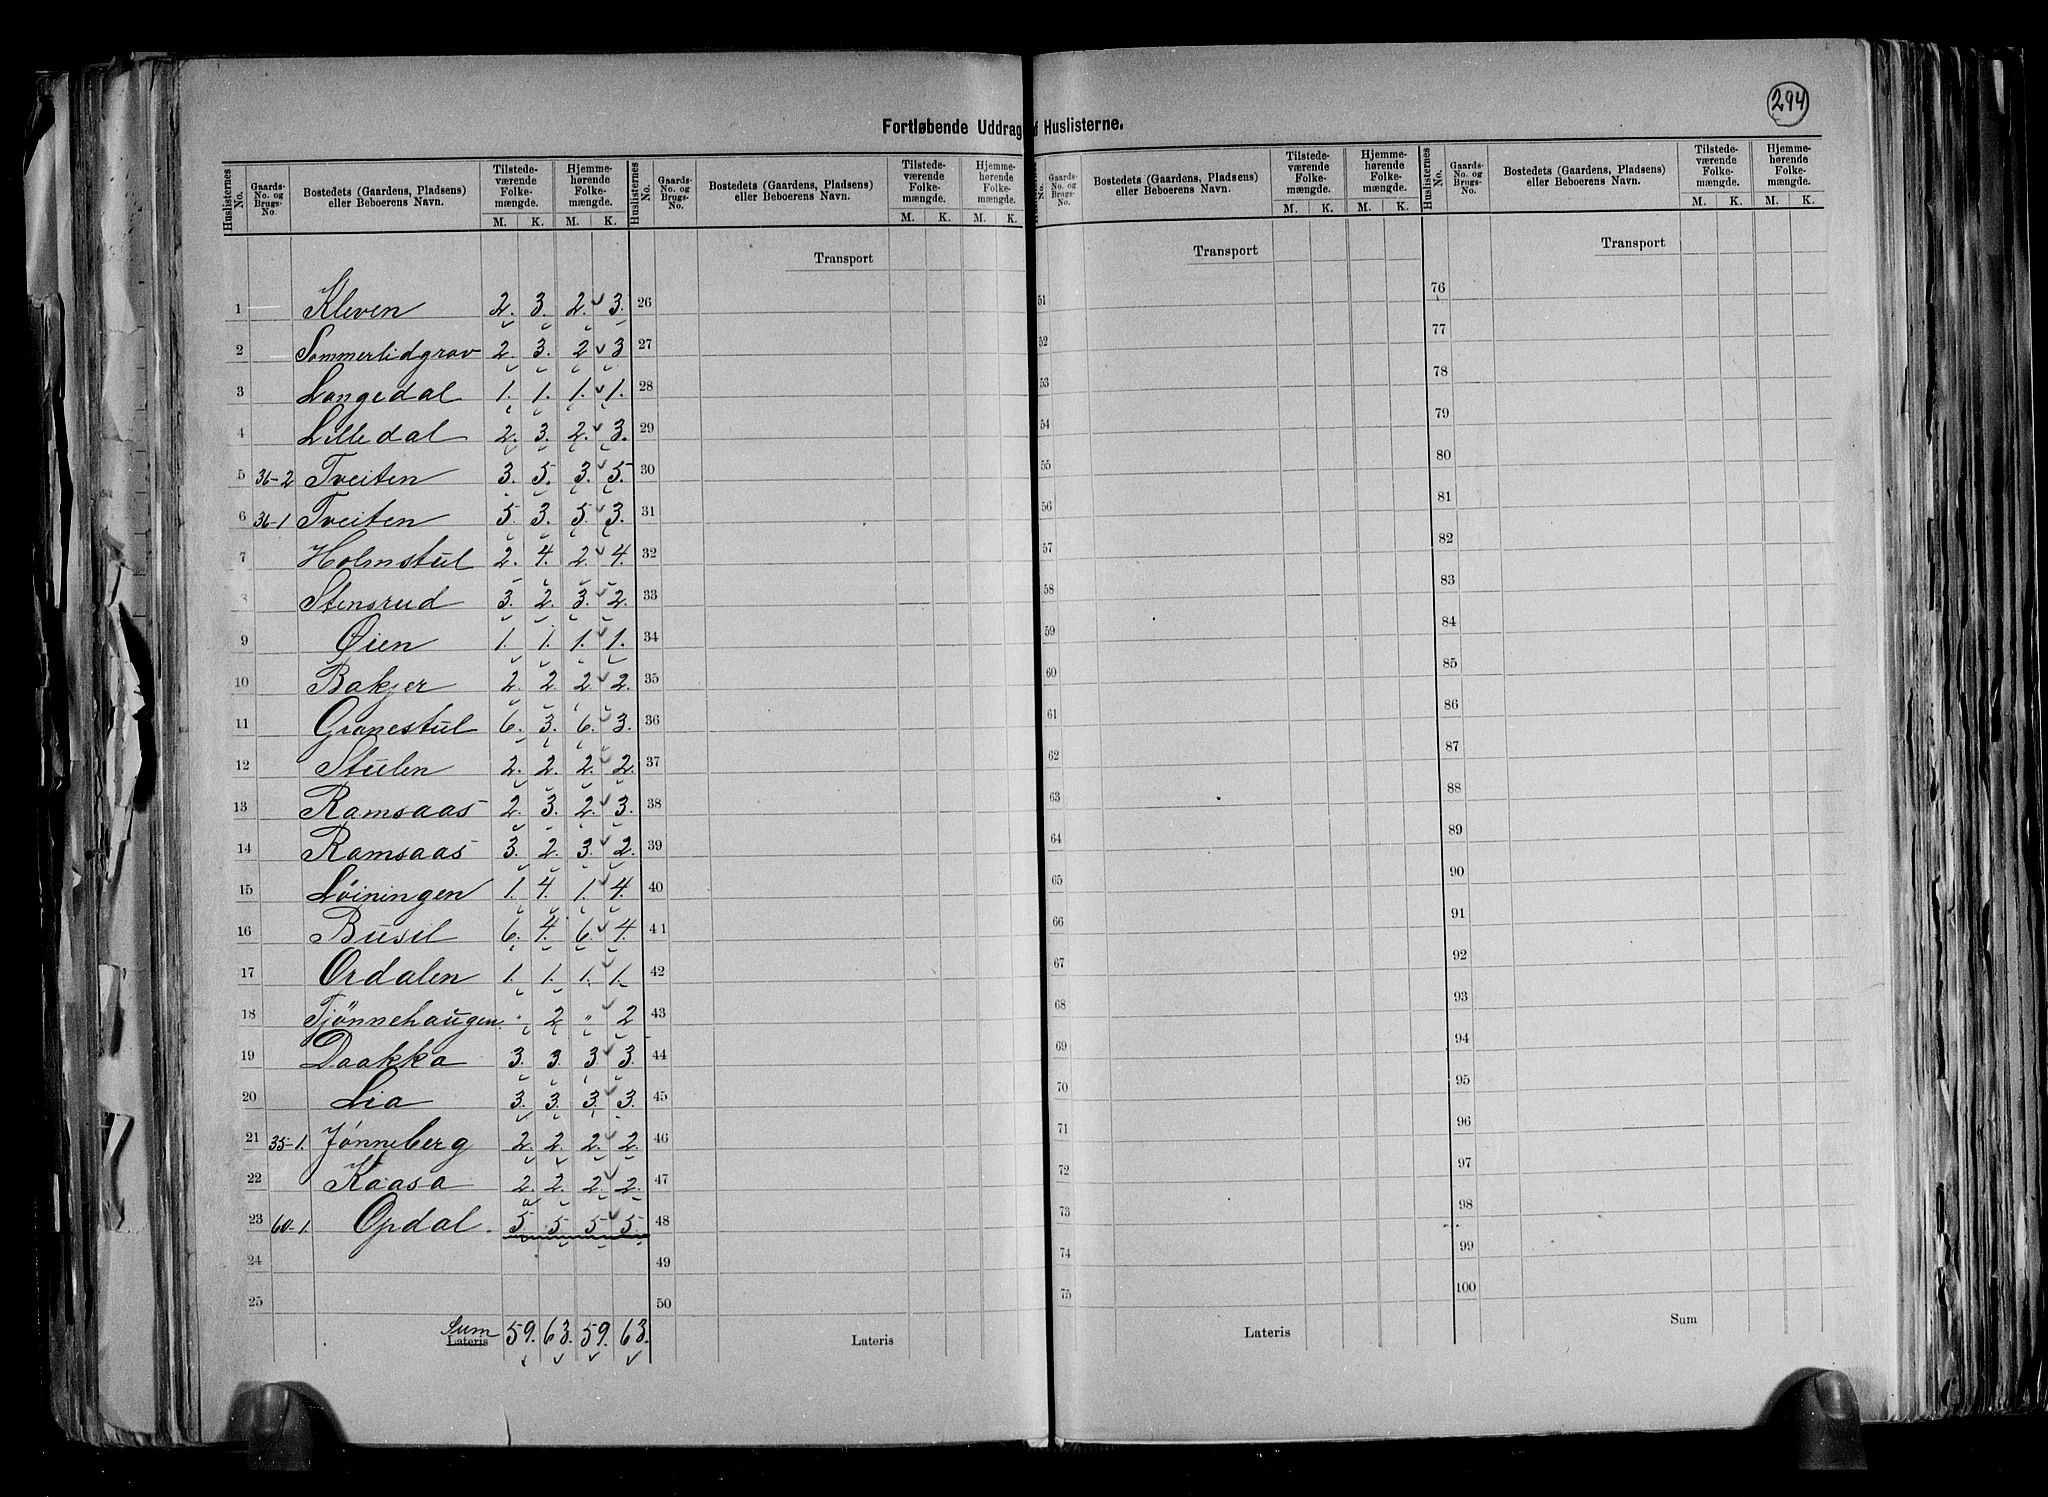 294
Fortløbende Uddrag af Huslisterne.
Huslisternes No. Gaards-No. og Brugs-No. Bostedets (Gaardens, Pladsens) eller Beboerens Navn. Tilstedeværende Folkemængde. M. K. Hjemmehørende Folkemængde. M. K.
Huslisternes No. Gaards-No. og Brugs-No. Bostedets (Gaardens, Pladsens) eller Beboerens Navn. Tilstedeværende Folkemængde. M. K. Hjemmehørende Folkemængde. M. K.
Huslisternes No. Gaards-No. og Brugs-No. Bostedets (Gaardens, Pladsens) eller Beboerens Navn. Tilstedeværende Folkemængde. M. K. Hjemmehørende Folkemængde. M. K.
Huslisternes No. Gaards-No. og Brugs-No. Bostedets (Gaardens, Pladsens) eller Beboerens Navn. Tilstedeværende Folkemængde. M. K. Hjemmehørende Folkemængde. M. K.
Transport Transport Transport
1 Kleven 2. 3. 2. 3. 26 51 76
2 Sommerlidgrav 2. 3. 2 3 27 52 77
3 Langedal 1. 1. 1. 1. 28 53 78
4 Lilledal 2. 3. 2. 3. 29 54 79
5 36-2 Tveiten 3. 5. 3. 5. 30 55 80
6 36-1 Tveiten 5. 3. 5. 3. 31 56 81
7 Holmstul 2. 4. 2. 4. 32 57 82
8 Stensrud 3. 2. 3. 2. 33 58 83
9 Øien 1. 1. 1. 1. 34 59 84
10 Bakjer 2. 2. 2 2. 35 60 85
11 Granestul 6. 3. 6. 3. 36 61 86
12 Stulen 2. 2. 2. 2. 37 62 87
13 Ramsaas 2. 3. 2. 3. 38 63 88
14 Ramsaas 3. 2. 3. 2. 39 64 89
15 Løiningen 1. 4. 1. 4. 40 65 90
16 Busel 6. 4. 6. 4. 41 66 91
17 Ordalen 1. 1. 1. 1. 42 67 92
18 Tjønnehaugen " 2 " 2 43 68 93
19 Daakka 3. 3. 3 3. 44 69 94
20 Lia 3. 3. 3. 3. 45 70 95
21 35-1. Jønneberg 2. 2. 2. 2. 46 71 96
22 Kaasa 2. 2. 2. 2. 47 72 97
23 60-1. Opdal. 5. 5. 5. 5. 48 73 98
24 49 74 99
25 50 75 100
Sum Lateris 59. 63. 59. 63. Lateris Lateris Sum